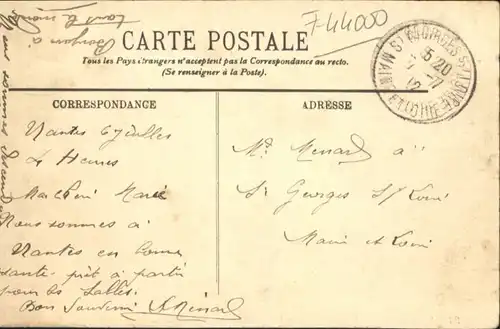 744000
CARTE POSTALE
Tous les Pays étrangers n'acceptent pas la Correspondance au recto.
(Se renseigner à la Poste).
CORRESPONDANCE
ADRESSE
Nantes 6 Juillet
4 Heures
Marie
Nous sommes à
Nantes en bonne
santé prêt à partir
pour les Sables.
Bon Souvenir Ménard
Md Menard à
St Georges S/ Loire
Maine et Loire
ST GEORGES S. LOIRE
5 20
7 -7
12
MAINE ET LOIRE
tout le monde
Bonjour à
Nous sommes